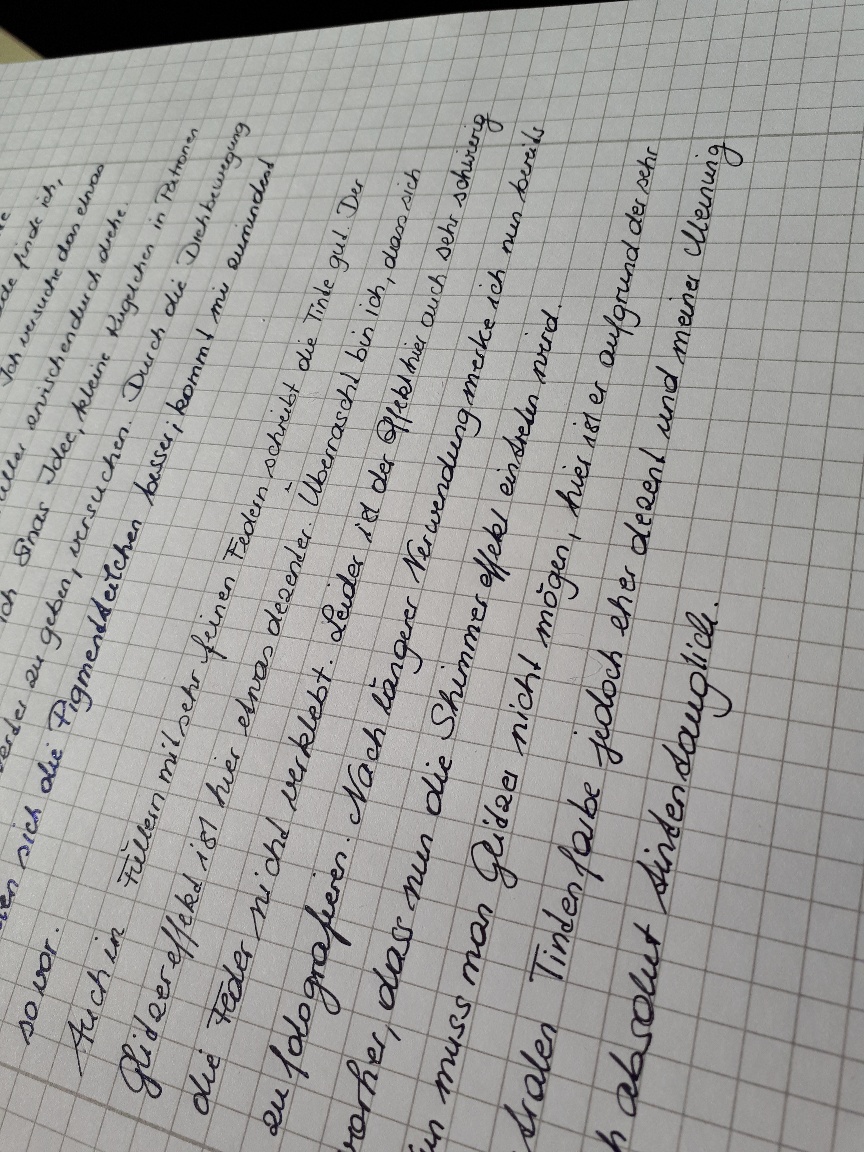 finde ich,
Ich versuche dan etwas
zwischendurch drehe.
ich Sinas Idee, kleine Kügelchen in Patronen
zu geben, versuchen. Durch die Drehbewegung
sich die Pigmentteilchen besser, kommt mir zumindest
so vor.
Auch in Füllern mit sehr feinen Federn schreibt die Tinte gut. Der
Glitzereffekt ist hier etwas dezenter. Überrascht bin ich, dass sich
die Feder nicht verklebt. Leider ist der Effekt hier auch sehr schwierig
zu fotografieren. Nach längerer Verwendung merke ich nun bereits
vorher, dass nun die Shimmereffekt eintreten wird.
muss man Glitzer nicht mögen, hier ist er aufgrund der sehr
Tintenfarbe jedoch eher dezent und meiner Meinung
absolut tintentauglich.